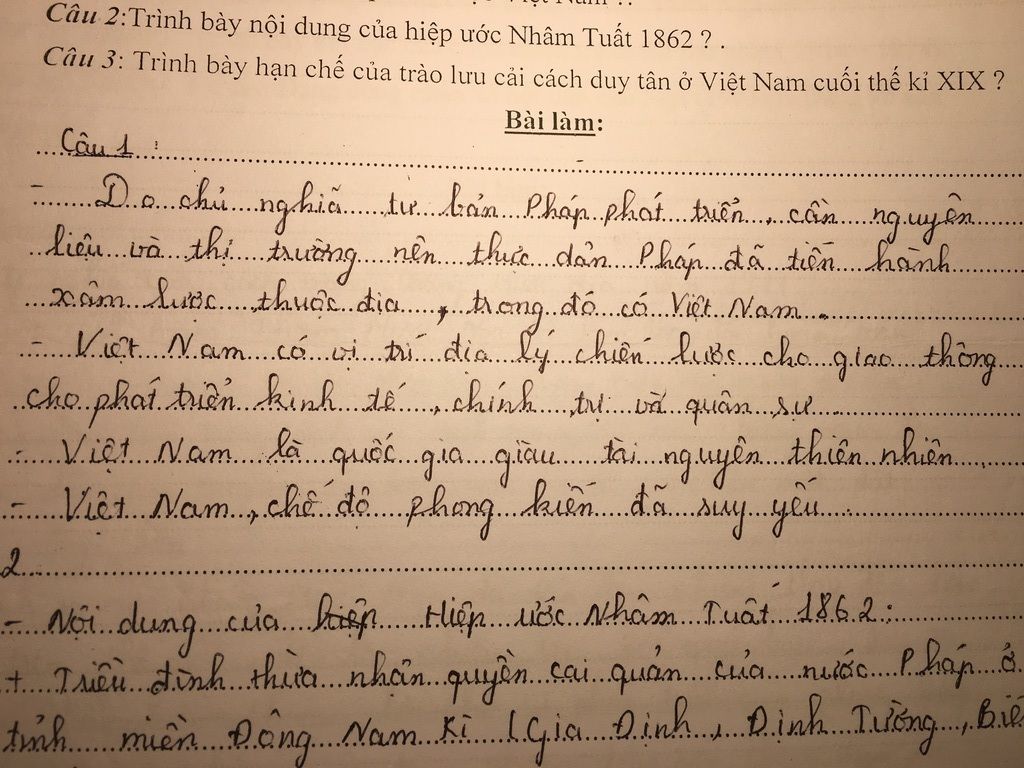 Việt Nam ?.
Câu 2:Trình bày nội dung của hiệp ước Nhâm Tuất 1862 ? .
Câu 3: Trình bày hạn chế của trào lưu cải cách duy tân ở Việt Nam cuối thế kỉ XIX ?
Bài làm:
Câu 1 :
- Do chủ nghĩa tư bản Pháp phát triển, cần nguyên
liệu và thị trường nên thực dân Pháp đã tiến hành
xâm lược thuộc địa, trong đó có Việt Nam.
- Việt Nam có vị trí địa lý chiến lược cho giao thông
cho phát triển kinh tế, chính trị và quân sự
- Việt Nam là quốc gia giàu tài nguyên thiên nhiên
- Việt Nam, chế độ phong kiến đã suy yếu
2
- Nội dung của Hiệp ước Nhâm Tuất 1862:
+ Triều đình thừa nhận quyền cai quản của nước Pháp ở
tỉnh miền Đông Nam Kì (Gia Định, Định Tường, Biê